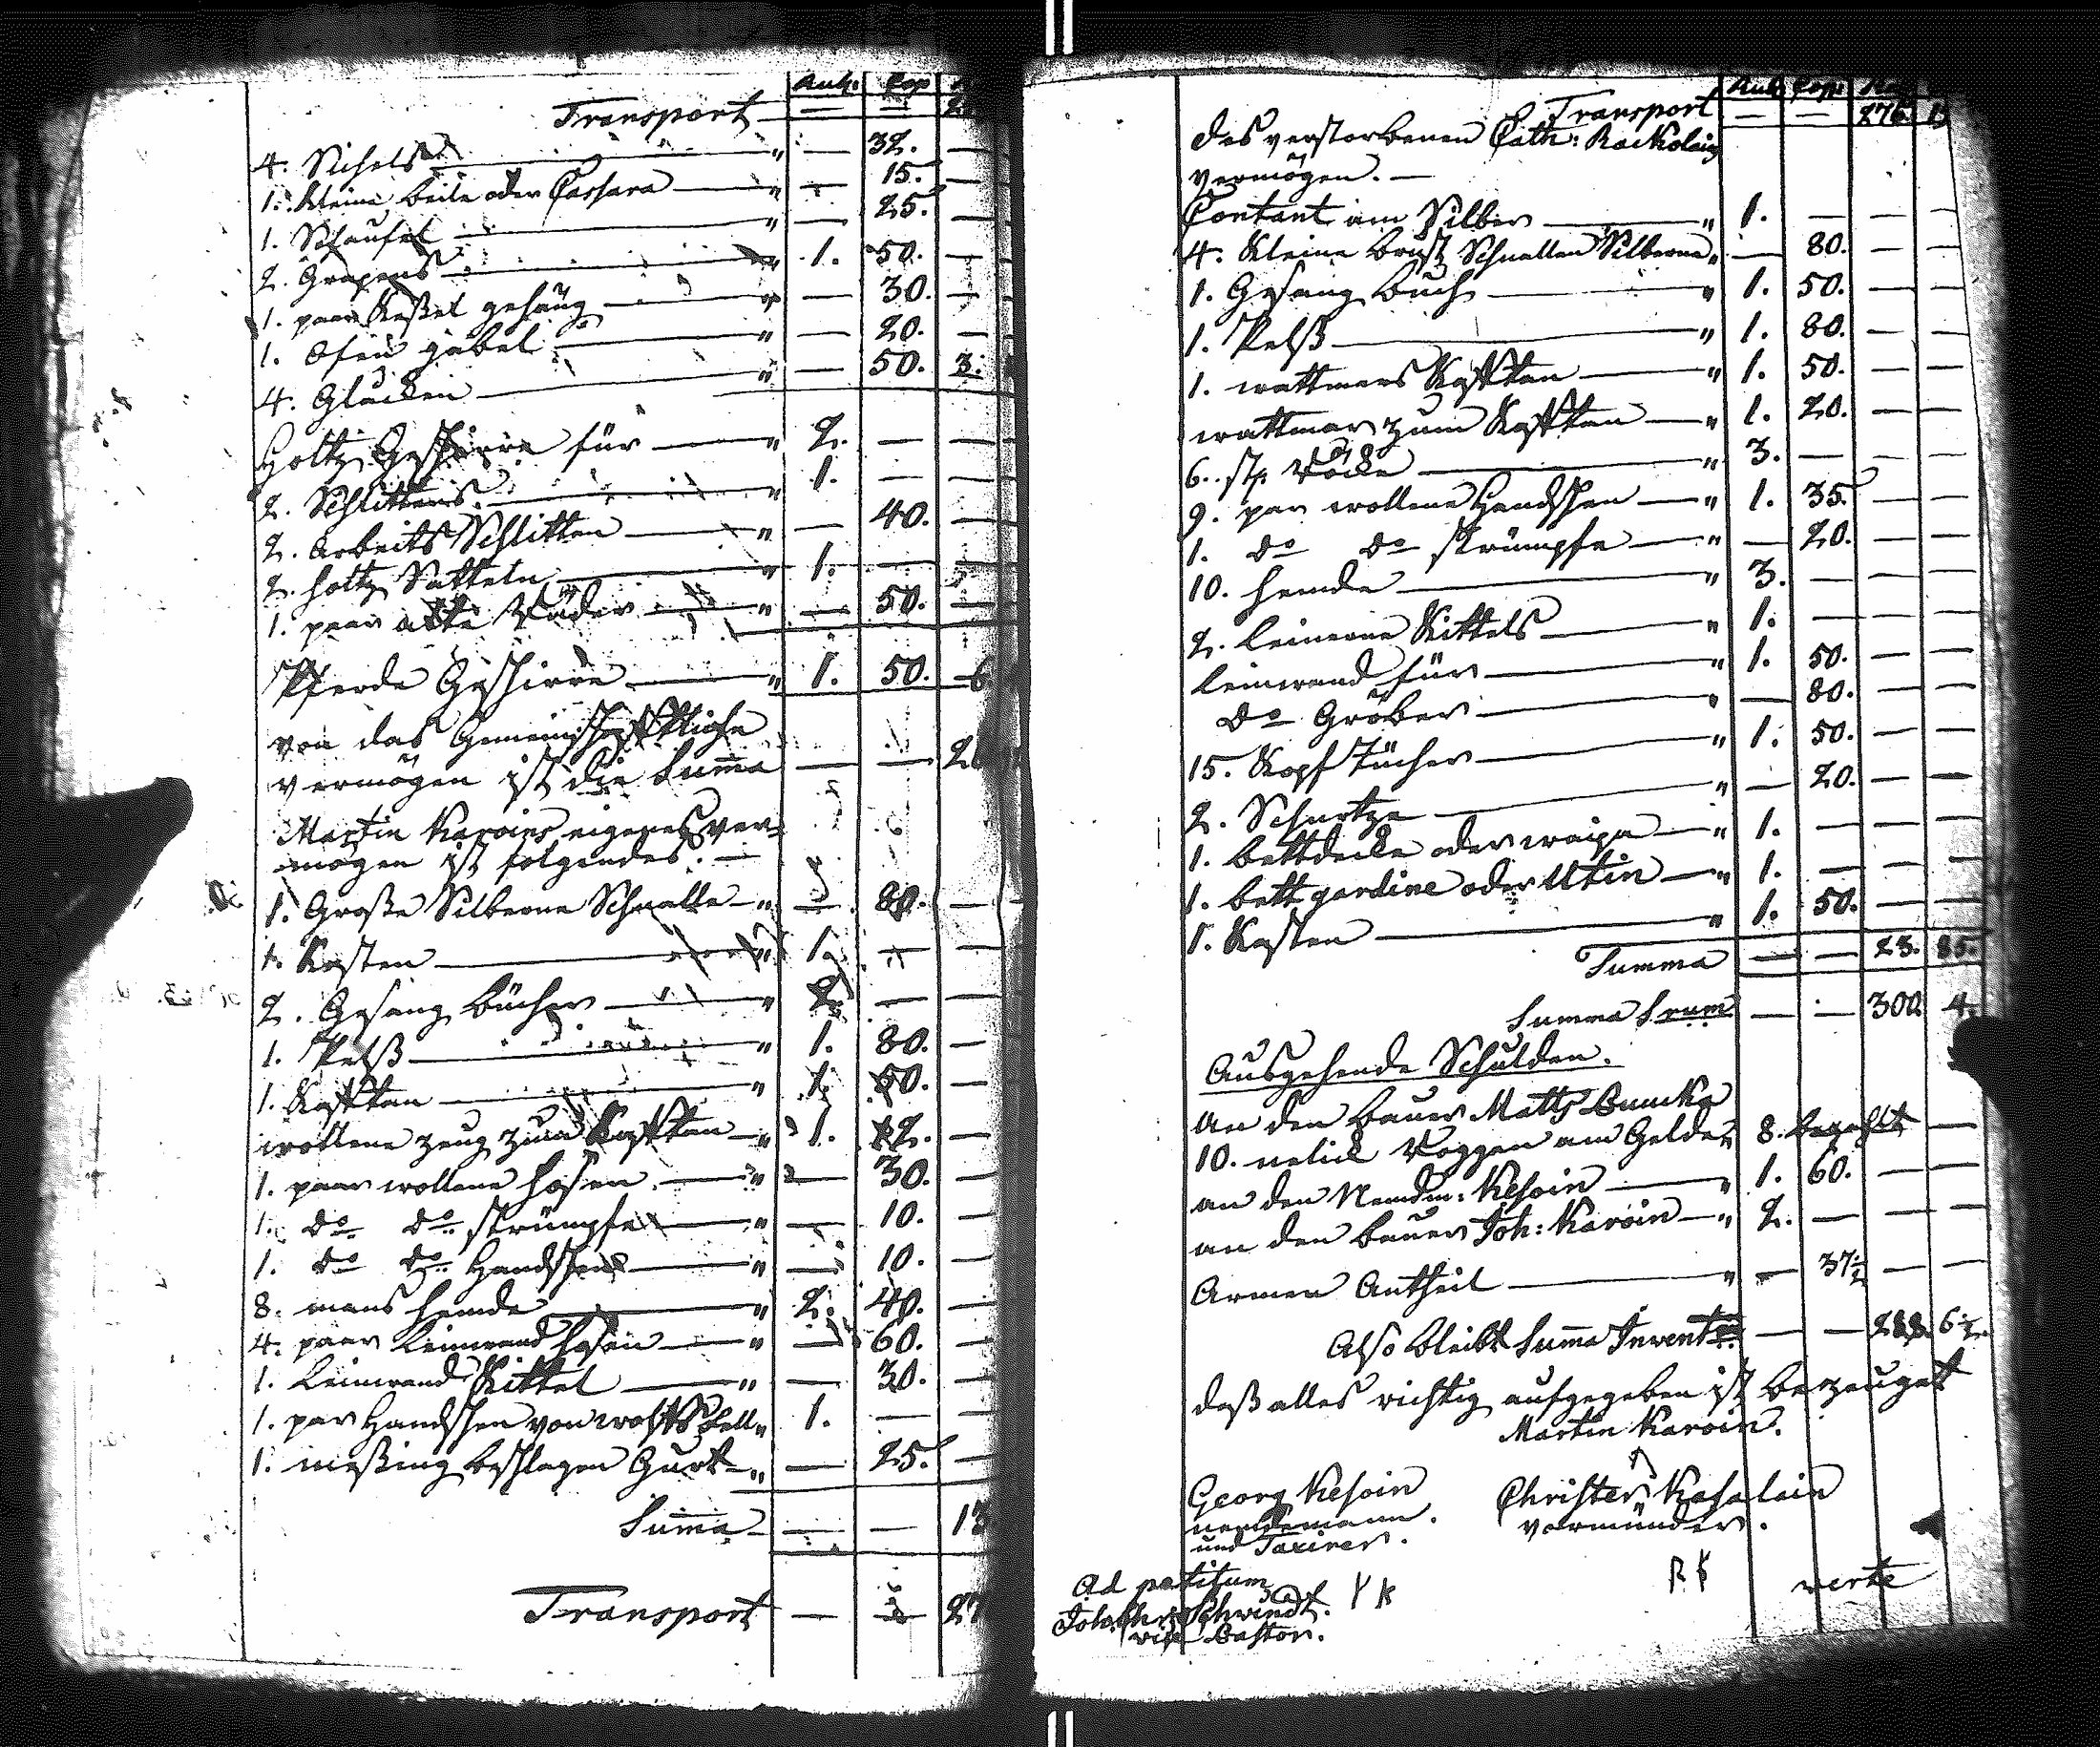 Rub: Cop
Transport — —
4. Sichels " — 32. —
1. Kleine beile oder Cassara " — 15. —
1. Schaufel " — 25. —
2. Grapens " 1. 50. —
1. paar Keßel gehäng " — 30. —
1. Ofen gabel " — 20. —
4. Glucken " — 50. 3.
Holtz Geschirre für " 2. — —
2. Schlittens " 1. — —
2. Arbeits Schlitten " — 40. —
2. holtz Satteln " 1. — —
1. paar alte Räder " — 50. —
Pferde Geschirre " 1. 50. 6.
von das Gemeinschafftliche
vermögen ist die Summa — —
Martin Karoins eigenes ver-
mögen ist folgendes. —
1. Große Silberne Schnalle " — 80. —
1. Kasten " 1. — —
2. Gesang bücher " 2. — —
1. Pelß " 1. 80. —
1. Kafftan " 1. 50. —
wollene zeug zum Kafftan " 1. 12. —
1. paar wollene hosen " — 30. —
1. do do strümpfe " — 10. —
1. do do Handschen " — 10. —
8. mans hemde " 2. 40. —
4. paar Leinwand hosen " — 60. —
1. Leinwand Kittel " — 30. —
1. par Handschen von wolfs fell " 1. — —
1. meßing beschlagen Gurt " — 25. —
Summa — — 13
Transport — — 27
Rub. Cop.
Transport — — 276.
des verstorbenen Cath: Rackolain
vermögen. —
Contant am Silber " 1. — — —
4. Kleine brust Schnallen Silberne " — 80. — —
1. Gesang buch " 1. 50. — —
1. Pelß " 1. 80. — —
1. wattmans Kafftan " 1. 50. — —
wattmar zum Kafftan " 1. 20. — —
6. st. Röcke " 3. — — —
9. par wollene Handschen " 1. 35. — —
1. do do strümpfe " — 20. — —
10. hemde " 3. — — —
2. leinerne Kittels " 1. — — —
Leinwand für " 1. 50. — —
do Gröber " — 80. — —
15. Kopf Tücher " 1. 50. — —
2. Schurtze " — 20. — —
1. bettdecke oder waipa " 1. — — —
1. bett gardine oder Utin " 1. — — —
1. Kasten " 1. 50. — —
Summa — — 23. 85.
Summa Srum — — 300. 4.
Ausgehende Schulden.
An den bauer Matts
10. Roggen am Gelde " 8. bezahlt —
an den Nemdm: Kesoin " 1. 60. — —
an den bauer Joh: Karoin " 2. — — —
Armen Antheil " — 37½ — —
Also bleibt Summa Invent: — — 288. 6½.
daß alles richtig aufgegeben ist bezeuget
Martin Karoin.
Georg Kesoin
nemdemann.
und Taxirer.
Christer Kasalain
vormünder.
R K
verte
Ad petitum
Joh. Chr: Schwindt.
Pastor.